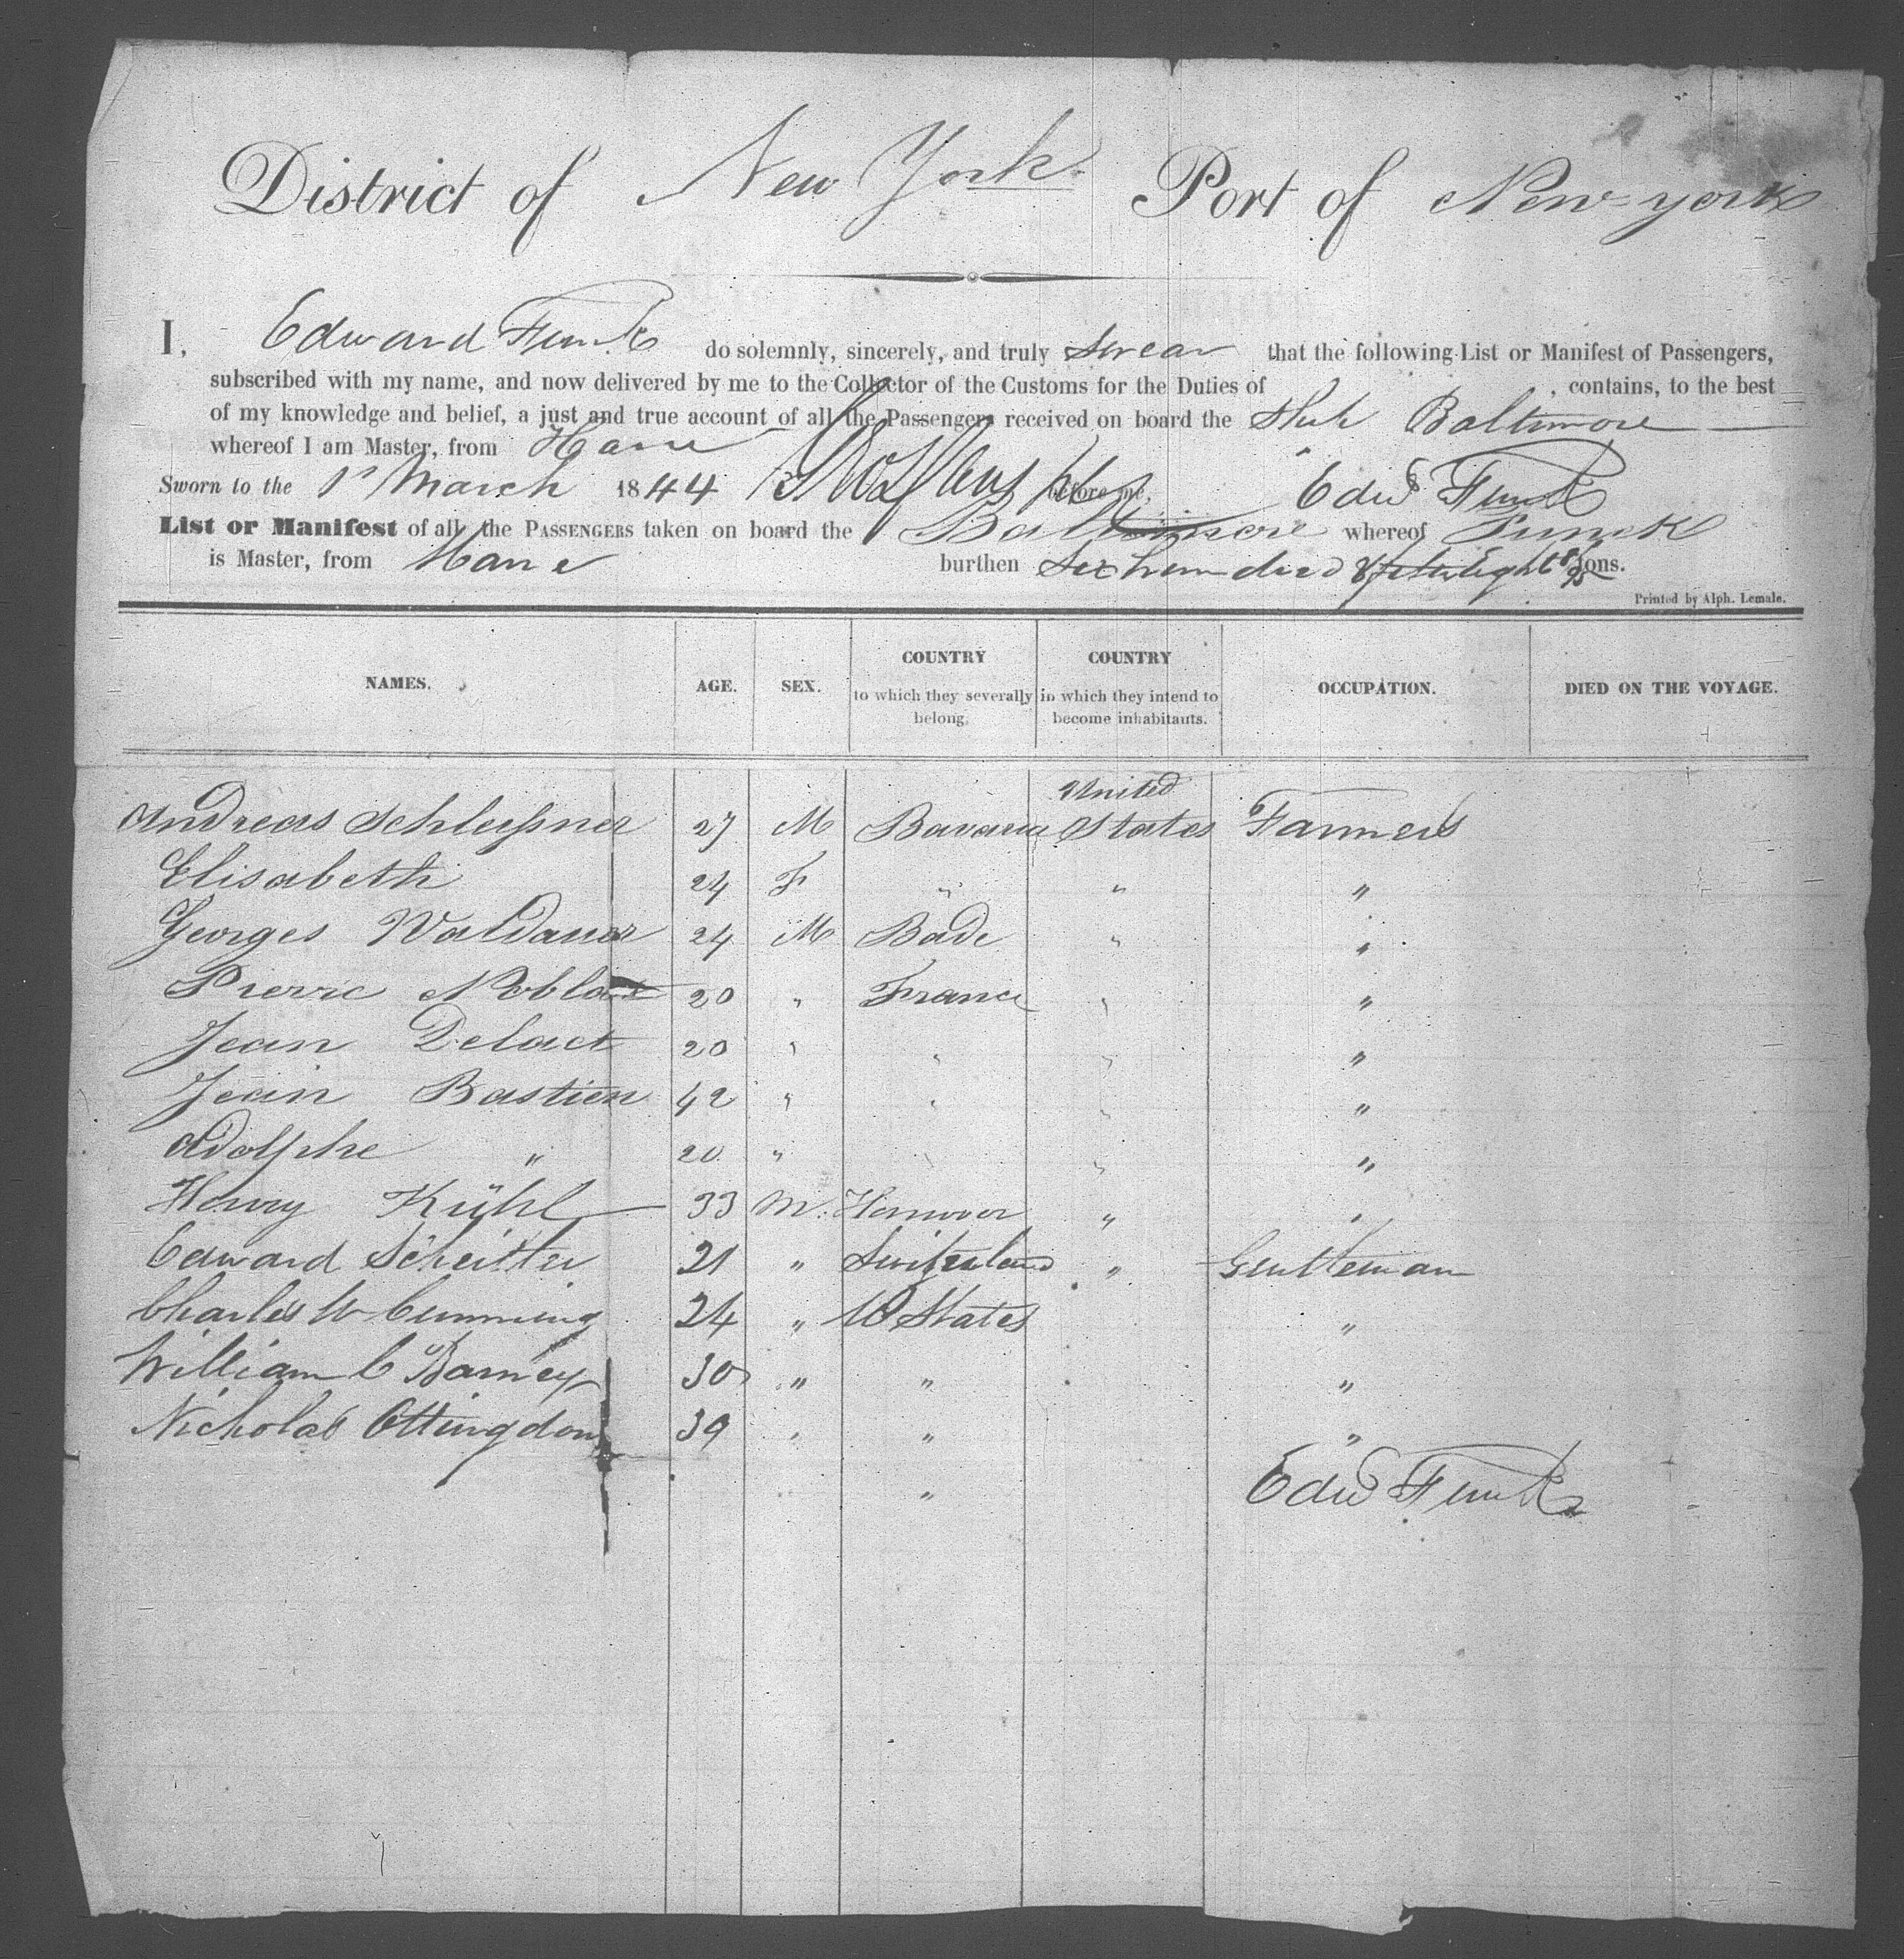 District of New York. Port of New-york
I, Edward Funk do solemnly, sincerely, and truly Swear that the following List or Manifest of Passengers,
subscribed with my name, and now delivered by me to the Collector of the Customs for the Duties of , contains, to the best
of my knowledge and belief, a just and true account of all the Passengers received on board the Ship Baltimore
whereof I am Master, from Havre
Sworn to the 1st March 1844 before me, Edwd Funk
List or Manifest of all the PASSENGERS taken on board the Baltimore whereof Funck
is Master, from Havre burthen Six hundred & fifty eight Tons.
Printed by Alph. Lemale.
NAMES. AGE. SEX. COUNTRY to which they severally belong. COUNTRY in which they intend to become inhabitants. OCCUPATION. DIED ON THE VOYAGE.
Andreas Schleissner 27 M Bavaria United States Farmers
Elisabeth 24 F " " "
Georges 24 M Bade " "
Pierre 20 " France " "
Jean Delact 20 " " " "
Jean Bastien 42 " " " "
Adolphe " 20 " " " "
Henry Kühl 33 M. Hanover " "
Edward 21 " Switzerland " Gentleman
Charles W Cumming 24 " U States "
William C Barney 30 " " "
Nicholas Ottingdon 39 " " "
" Edwd Funk